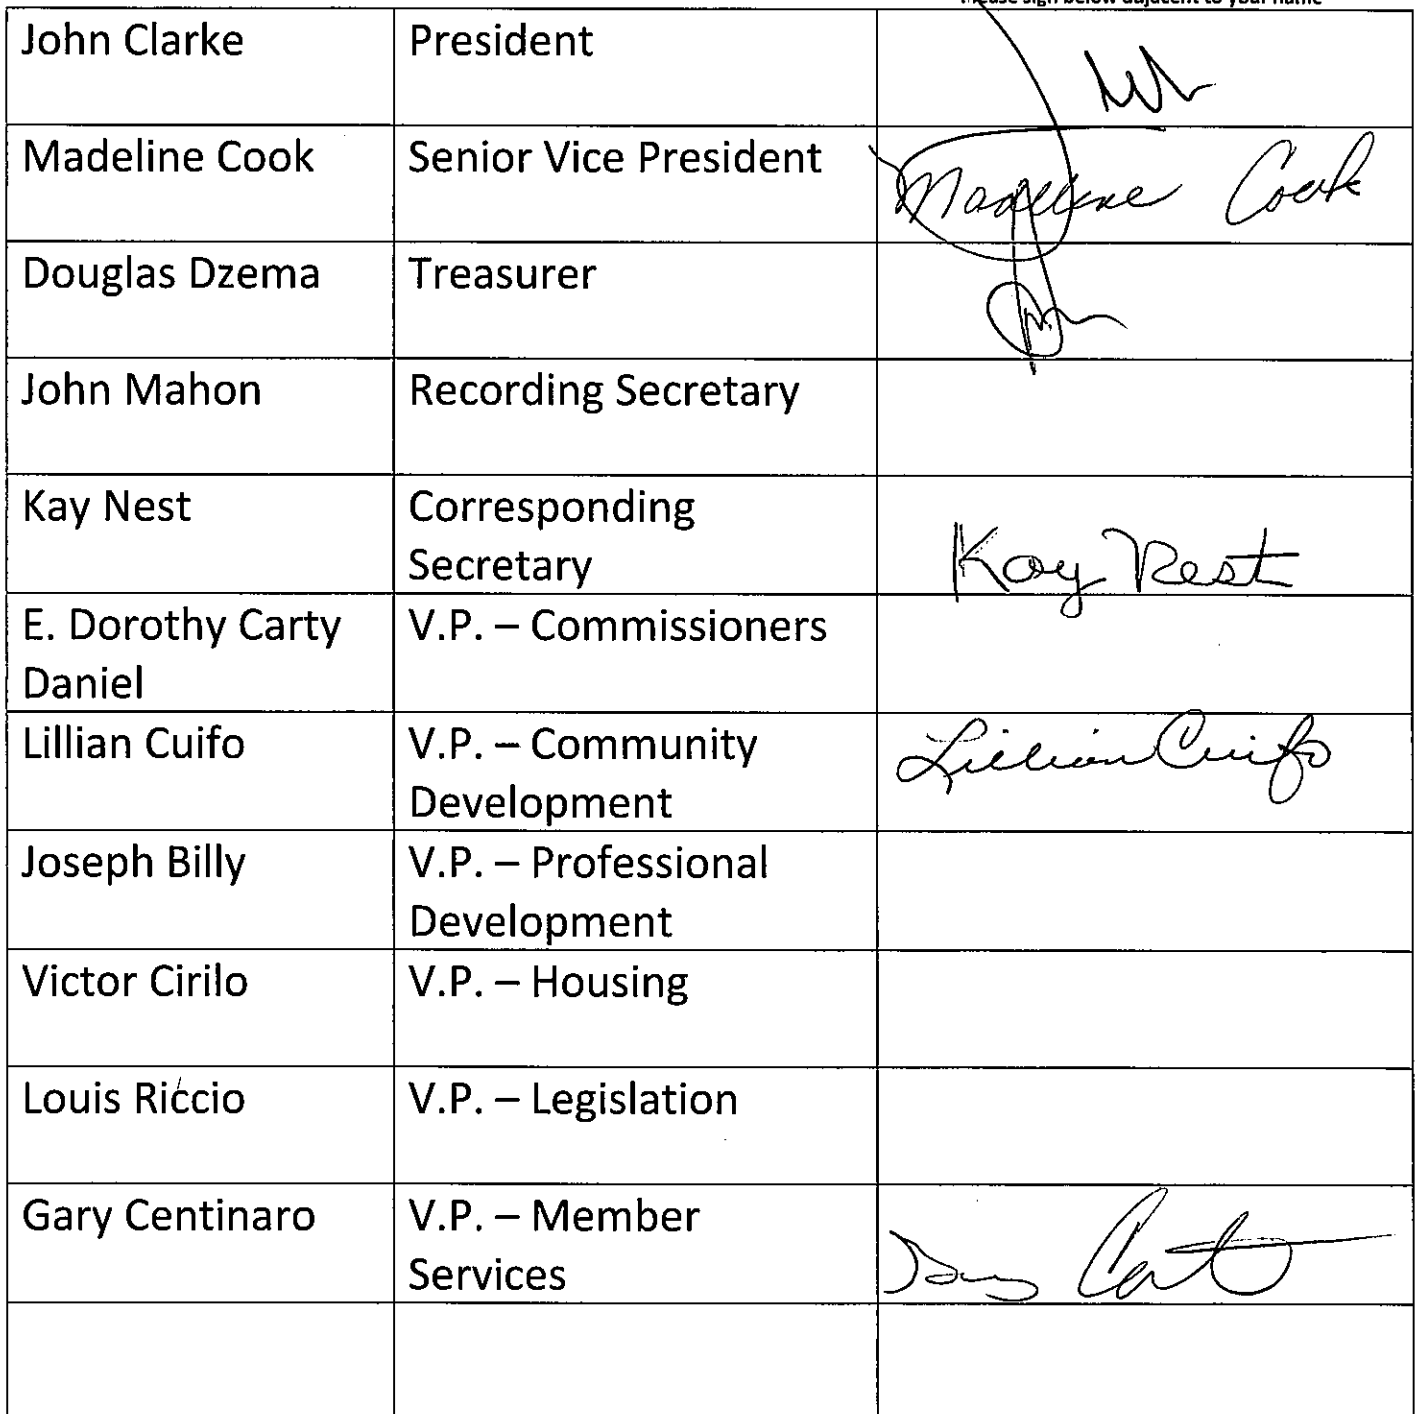 Please sign below adjacent to your name
John Clarke President
Madeline Cook Senior Vice President Madeline Cook
Douglas Dzema Treasurer
John Mahon Recording Secretary
Kay Nest Corresponding Kay Nest
Secretary
E. Dorothy Carty V.P. – Commissioners
Daniel
Lillian Cuifo V.P. – Community Lillian Cuifo
Development
Joseph Billy V.P. – Professional
Development
Victor Cirilo V.P. – Housing
Louis Riccio V.P. – Legislation
Gary Centinaro V.P. – Member
Services